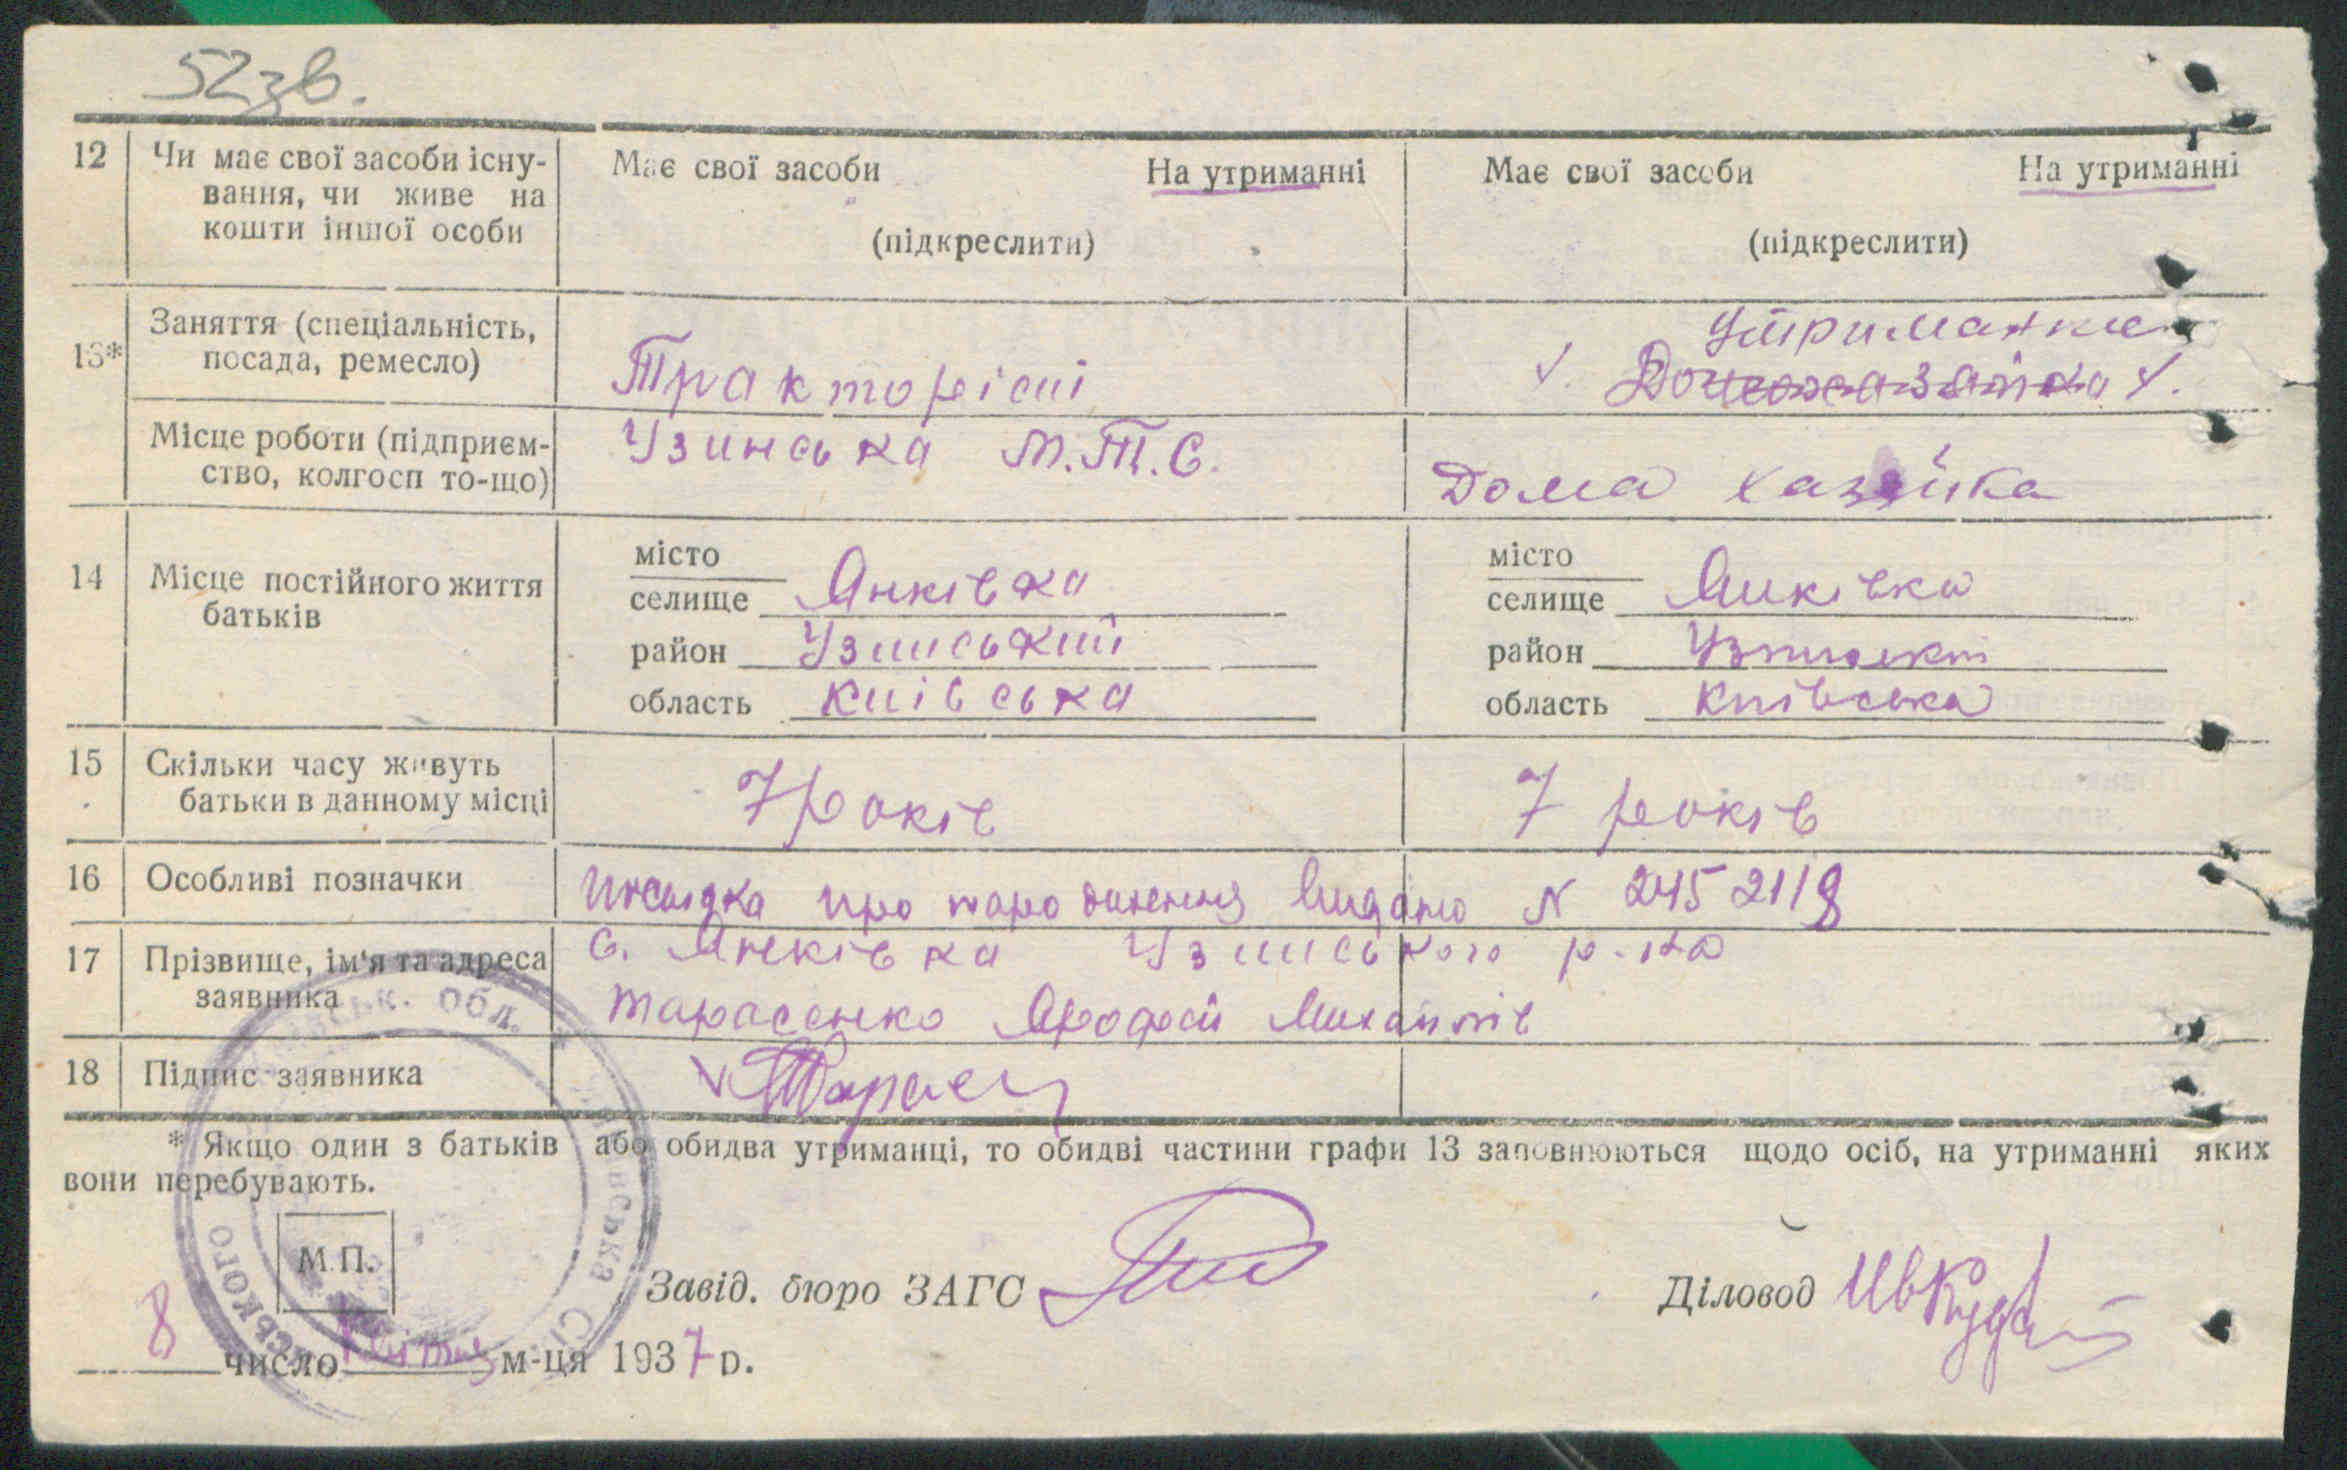 52зв.
12 Чи має свої засоби існу- Має свої засоби На утриманні Має свої засоби На утриманні
вання, чи живе на
кошти іншої особи (підкреслити) (підкреслити)
Утриманка
13* Заняття (спеціальність, посада, ремесло) Тракторісті Домохазяйка
Місце роботи (підприєм- Узинська М.Т.С.
ство, колгосп то-що) Дома хазяйка
місто місто
14 Місце постійного життя селище Янківка селище Янківка
батьків район Узинський район
область Київська область Київська
15 Скільки часу живуть 7 років 7 років
батьки в данному місці
16 Особливі позначки про народження видано N 2452118
17 Прізвище, ім'я та адреса с. Янківка Узинського р-на
заявника Тарасенко Михайлів
18 Підпис заявника
* Якщо один з батьків або обидва утриманці, то обидві частини графи 13 заповнюються щодо осіб, на утриманні яких
вони перебувають.
М.П.
Завід. бюро ЗАГС Діловод
8 число м-ця 1937 р.